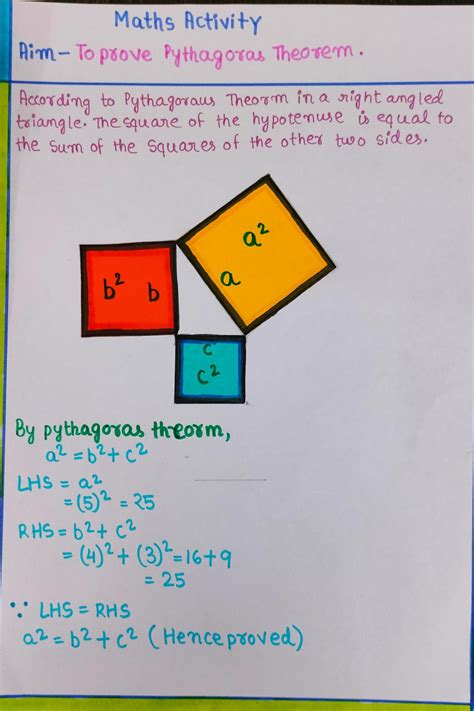 Maths Activity
Aim - To prove Pythagoras Theorem.
According to Pythagoraus Theorm in a right angled
triangle. The square of the hypotenuse is equal to
the sum of the squares of the other two sides.
a²
b² b
a
c
c²
By pythagoras theorm,
a² = b² + c²
LHS = a²
= (5)² = 25
RHS = b² + c²
= (4)² + (3)² = 16 + 9
= 25
∵ LHS = RHS
a² = b² + c² (Hence proved)